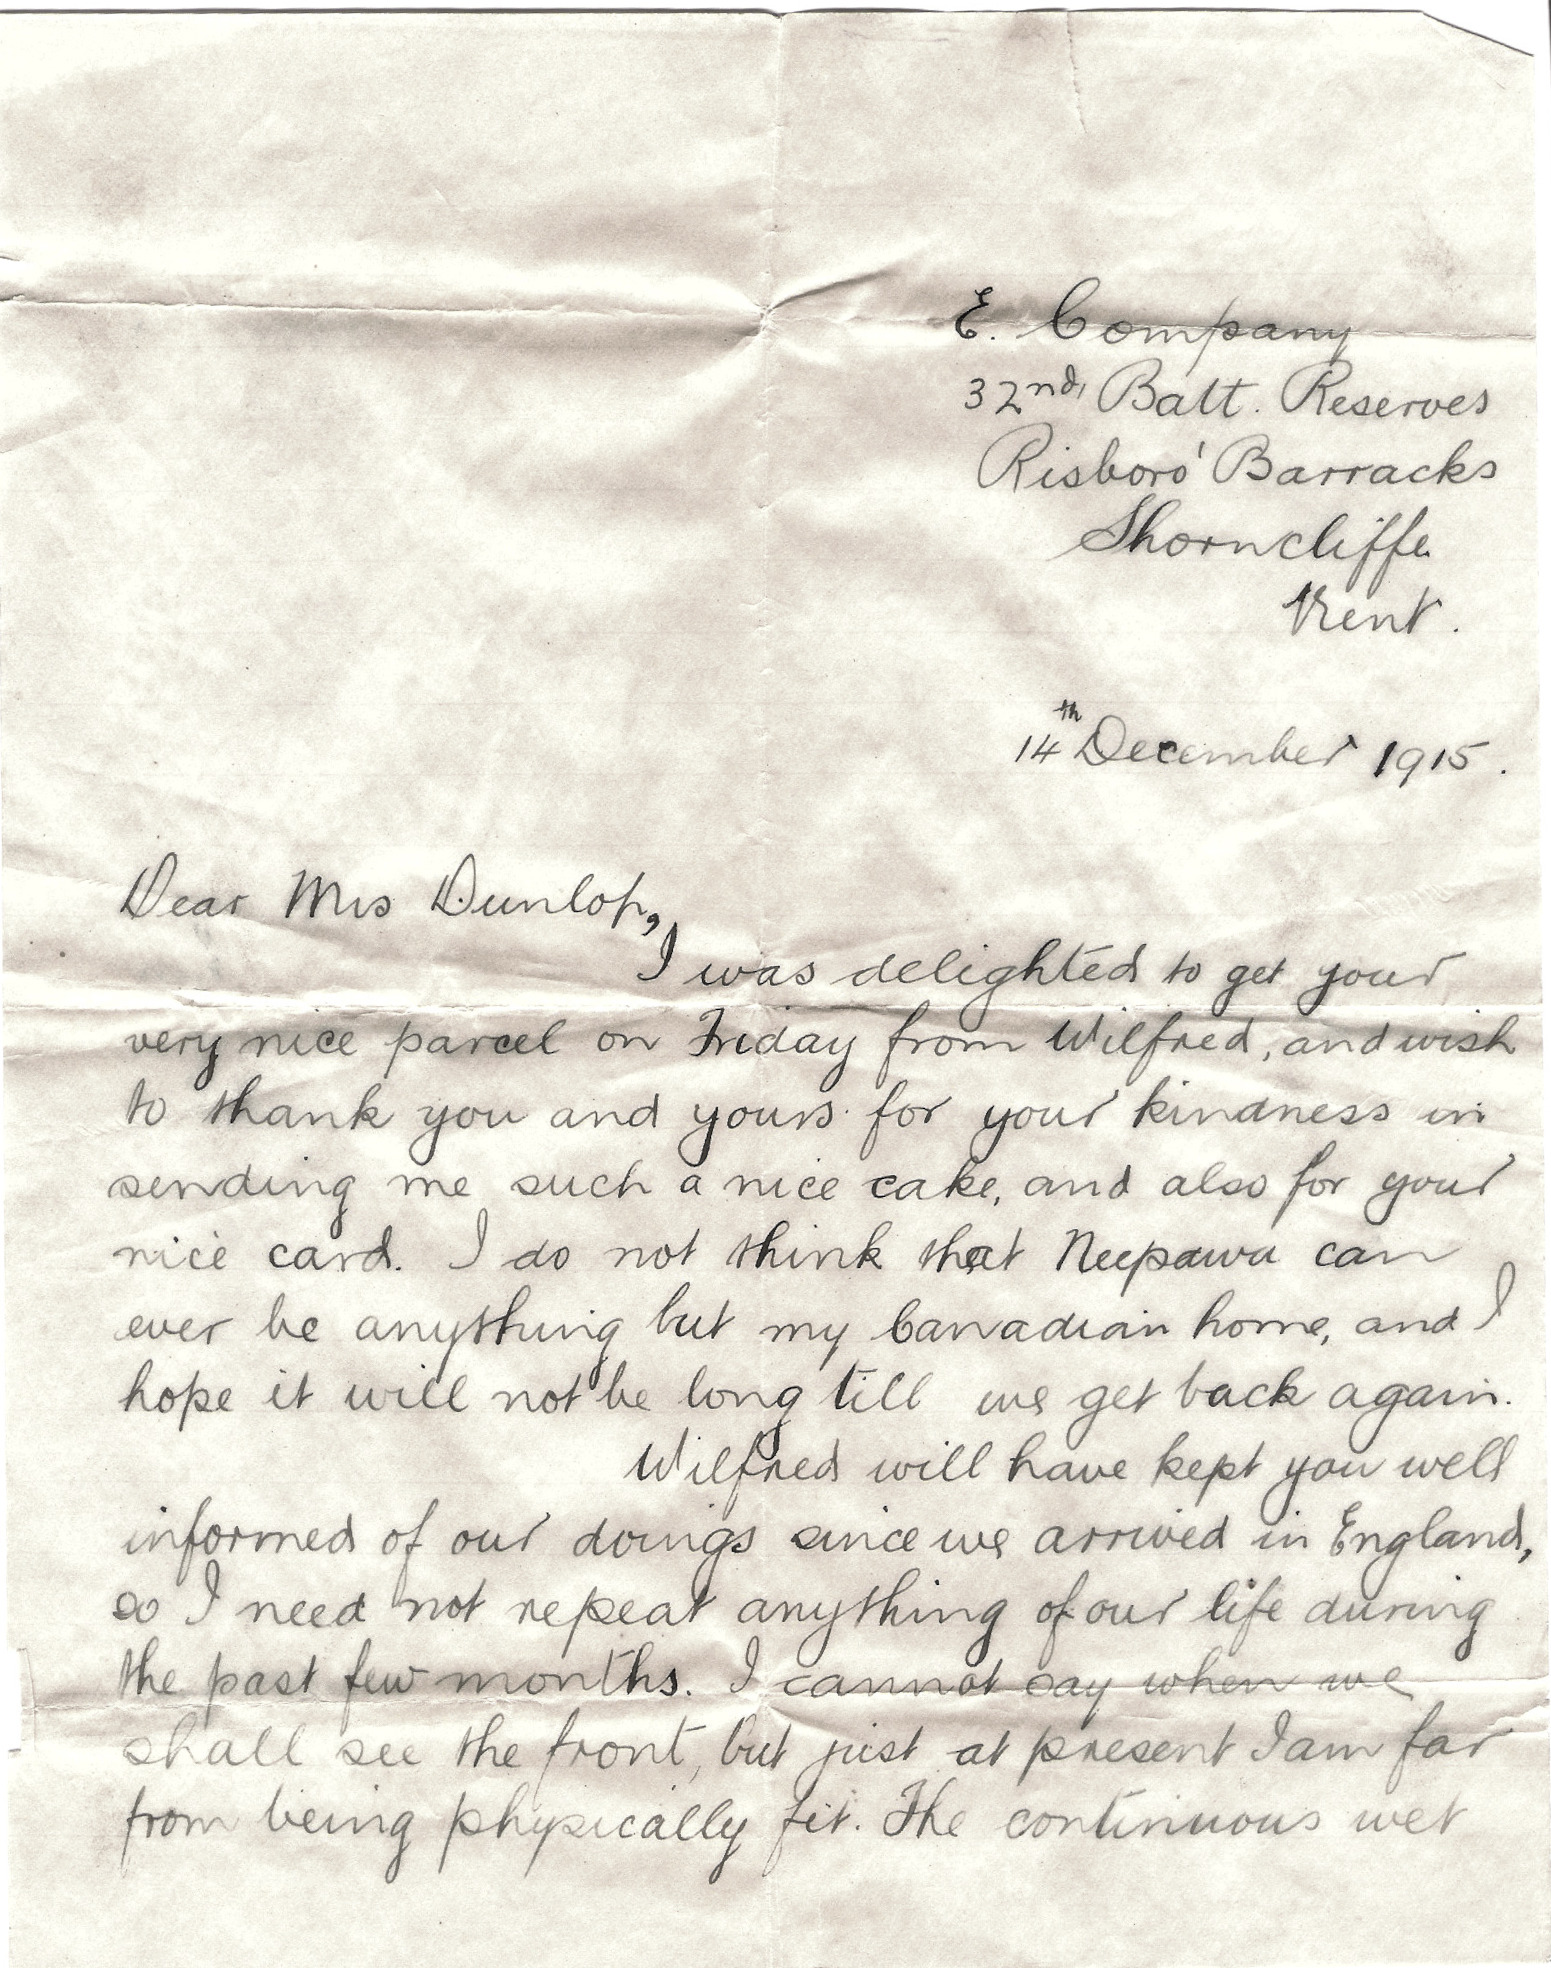 E. Company
32nd, Batt. Reserves
Risboro' Barracks
Shorncliffe
Kent.
14th December 1915.
Dear Mrs Dunlop,
I was delighted to get your
very nice parcel on Friday from Wilfred, and wish
to thank you and yours for your kindness in
sending me such a nice cake, and also for your
nice card. I do not think that Neepawa can
ever be anything but my Canadian home, and I
hope it will not be long till we get back again.
Wilfred will have kept you well
informed of our doings since we arrived in England,
so I need not repeat anything of our life during
the past few months. I cannot say when we
shall see the front, but just at present I am far
from being physically fit. The continuous wet